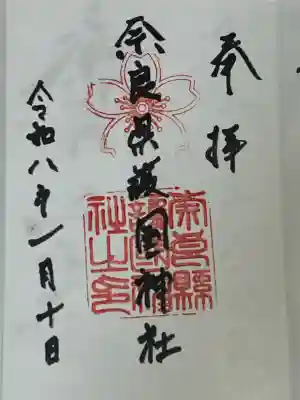 奉拝
奈良県護国神社
奈良縣護國神社之印
令和八年一月十日